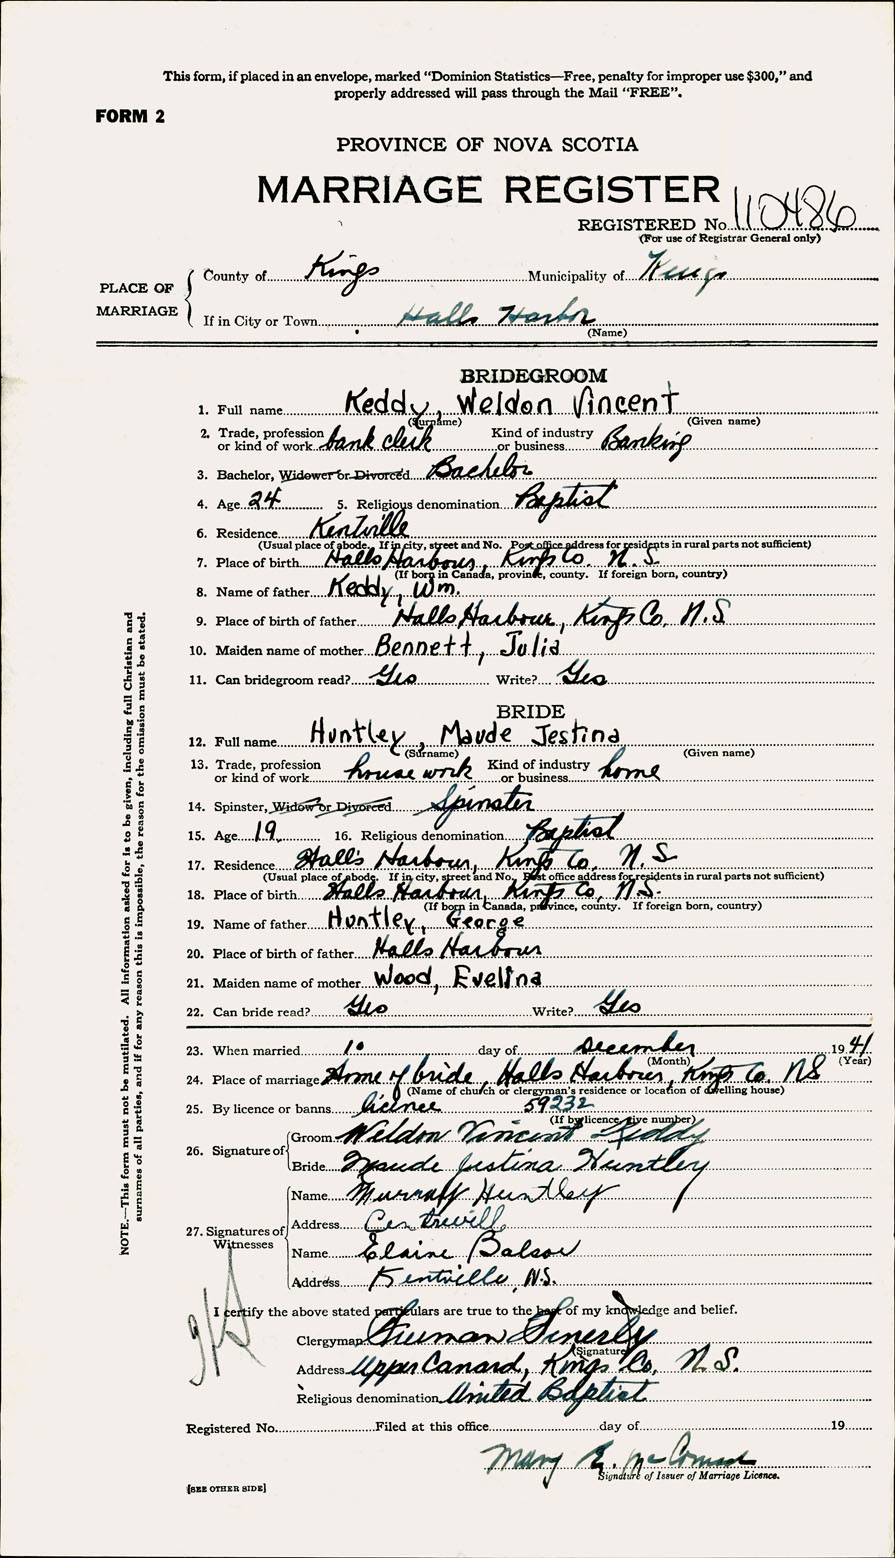 This form, if placed in an envelope, marked “Dominion Statistics—Free, penalty for improper use $300,” and
properly addressed will pass through the Mail “FREE”.
FORM 2
PROVINCE OF NOVA SCOTIA
MARRIAGE REGISTER
REGISTERED No. 110486
(For use of Registrar General only)
PLACE OF MARRIAGE
County of Kings Municipality of Kings
If in City or Town Halls Harbor
(Name)
BRIDEGROOM
1. Full name Keddy, Weldon Vincent
(Surname) (Given name)
2. Trade, profession or kind of work bank clerk Kind of industry or business Banking
3. Bachelor, Widower or Divorced Bachelor
4. Age 24 5. Religious denomination Baptist
6. Residence Kentville
(Usual place of abode. If in city, street and No. Post office address for residents in rural parts not sufficient)
7. Place of birth Halls Harbour, Kings Co. N.S.
(If born in Canada, province, county. If foreign born, country)
8. Name of father Keddy, Wm.
9. Place of birth of father Halls Harbour, Kings Co, N.S
10. Maiden name of mother Bennett, Julia
11. Can bridegroom read? Yes Write? Yes
BRIDE
12. Full name Huntley, Maude Jestina
(Surname) (Given name)
13. Trade, profession or kind of work house work Kind of industry or business home
14. Spinster, Widow or Divorced Spinster
15. Age 19 16. Religious denomination Baptist
17. Residence Hall's Harbour, Kings Co, N.S
(Usual place of abode. If in city, street and No. Post office address for residents in rural parts not sufficient)
18. Place of birth Halls Harbour, Kings Co, N.S.
(If born in Canada, province, county. If foreign born, country)
19. Name of father Huntley, George
20. Place of birth of father Halls Harbour
21. Maiden name of mother Wood, Evelina
22. Can bride read? Yes Write? Yes
23. When married 10 day of December 1941
(Month) (Year)
24. Place of marriage Home of bride, Halls Harbour, Kings Co. NS
(Name of church or clergyman's residence or location of dwelling house)
25. By licence or banns licence 59232
(If by licence, give number)
26. Signature of
Groom Weldon Vincent Keddy
Bride Maude Justina Huntley
27. Signatures of Witnesses
Name Murray Huntley
Address Centreville
Name Elaine Balsor
Address Kentville, N.S.
I certify the above stated particulars are true to the best of my knowledge and belief.
Clergyman Freeman
(Signature)
Address Upper Canard, Kings Co, N.S.
Religious denomination United Baptist
Registered No. Filed at this office day of 19
Mary E.
Signature of Issuer of Marriage Licence.
[SEE OTHER SIDE]
NOTE.—This form must not be mutilated. All information asked for is to be given, including full Christian and
surnames of all parties, and if for any reason this is impossible, the reason for the omission must be stated.